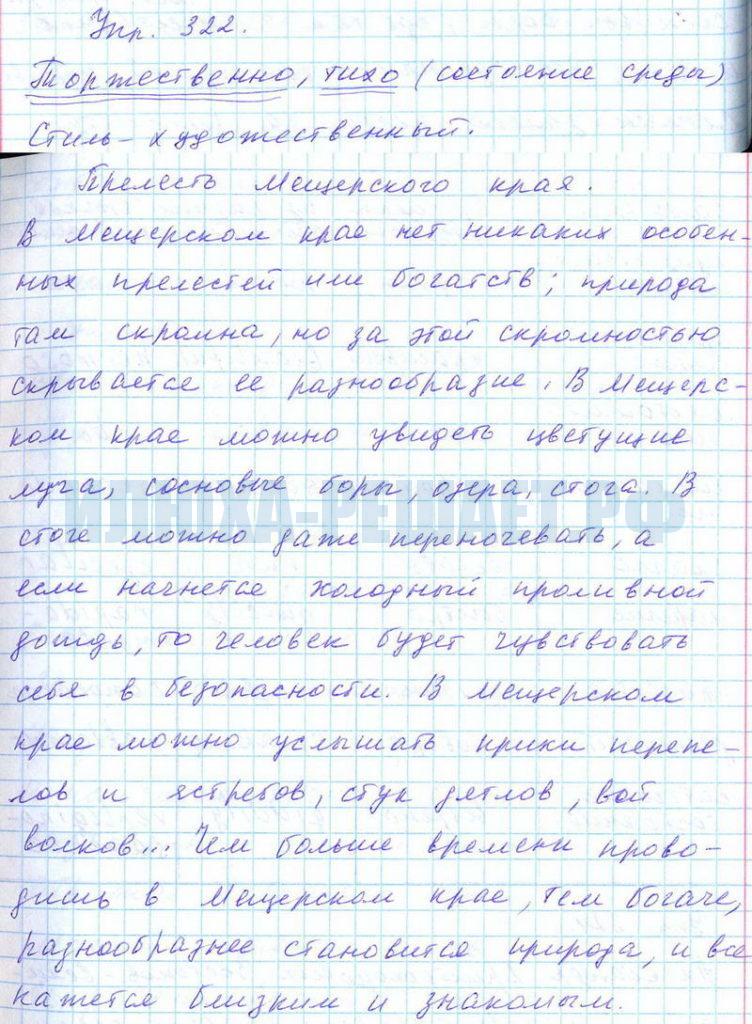 Упр. 322.
Торжественно, тихо (состояние среды)
Стиль – художественный.
Прелесть Мещерского края.
В Мещерском крае нет никаких особен-
ных прелестей или богатств; природа
там скромна, но за этой скромностью
скрывается ее разнообразие. В Мещерс-
ком крае можно увидеть цветущие
луга, сосновые боры, озера, стога. В
ИЛЮХА-РЕШАЕТ.РФ
стоге можно даже переночевать, а
если начнется холодный проливной
дождь, то человек будет чувствовать
себя в безопасности. В Мещерском
крае можно услышать крики перепе-
лов и ястребов, стук дятлов, вой
волков... Чем больше времени прово-
дишь в Мещерском крае, тем богаче,
разнообразнее становится природа, и все
кажется близким и знакомым.